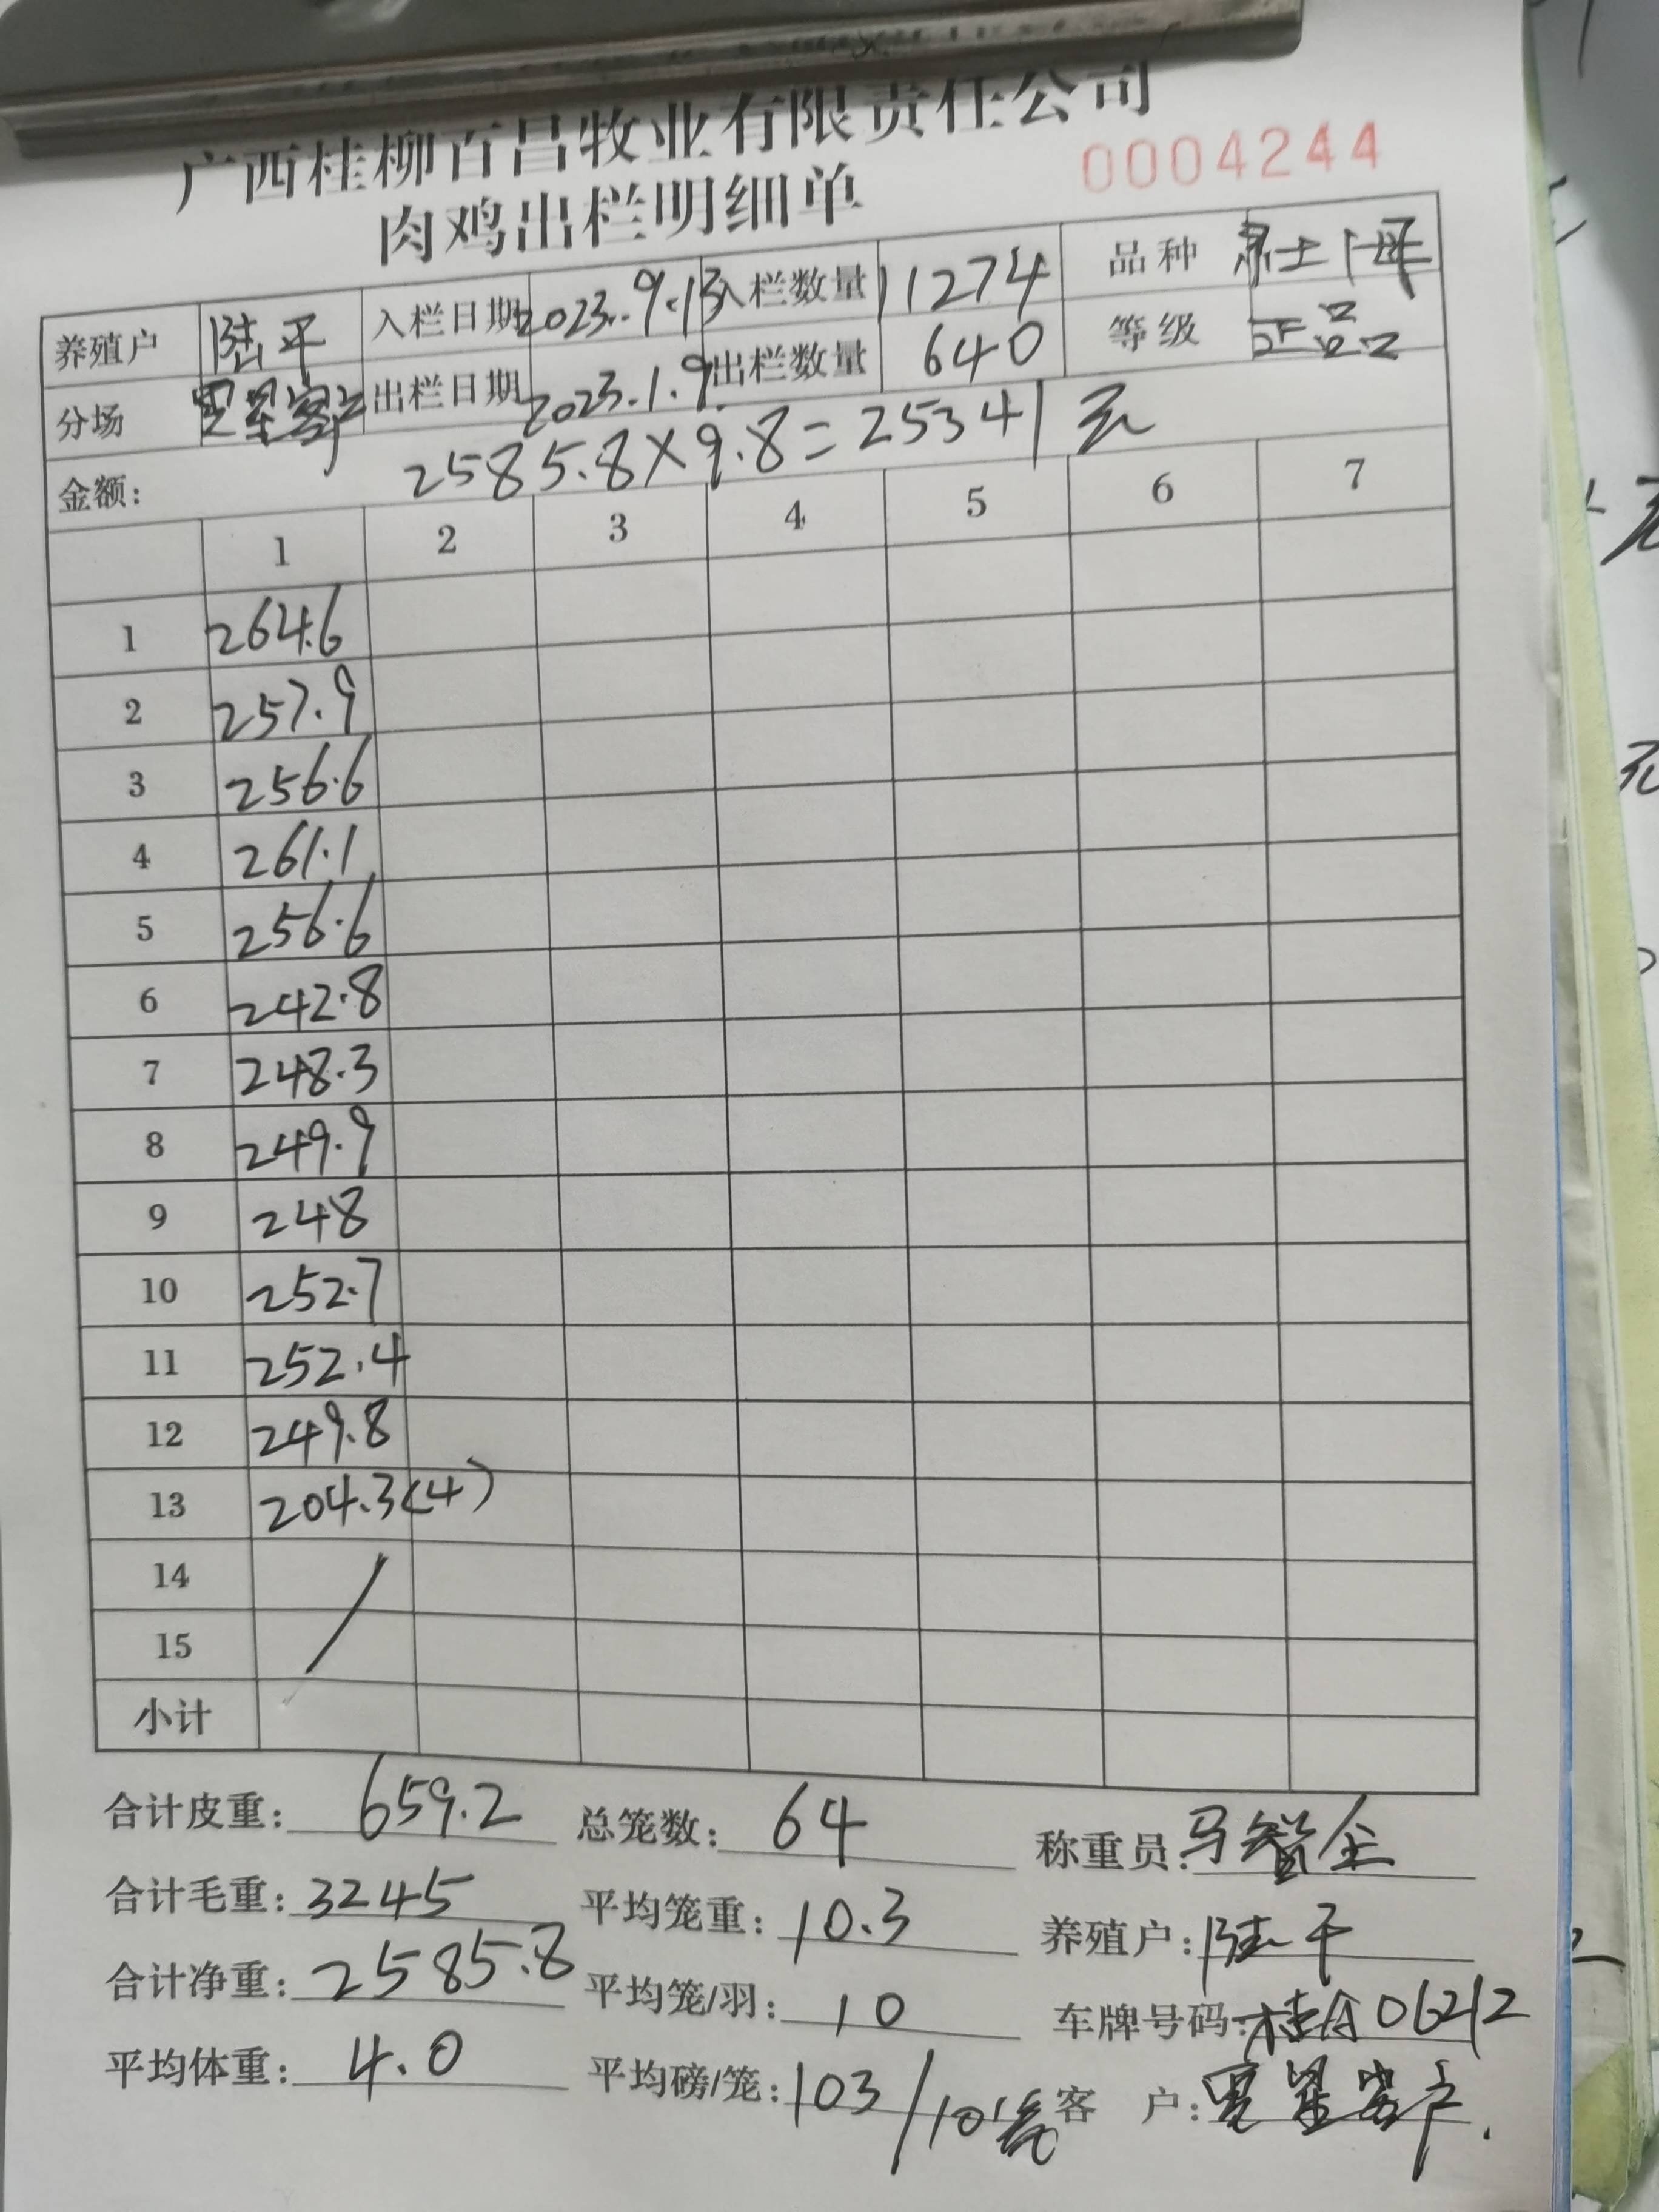 广西桂柳百昌牧业有限责任公司
肉鸡出栏明细单 0004244
养殖户 陆平 入栏日期 2023.9.13 入栏数量 11274 品种
分场 出栏日期 2023.1.9. 出栏数量 640 等级 正品
金额: 2585.8×9.8=25341元
1 2 3 4 5 6 7
1 264.6
2 257.9
3 256.6
4 261.1
5 256.6
6 242.8
7 248.3
8 249.9
9 248
10 252.7
11 252.4
12 249.8
13 204.3(4)
14
15
小计
合计皮重: 659.2 总笼数: 64 称重员: 马智全
合计毛重: 3245 平均笼重: 10.3 养殖户: 陆平
合计净重: 2585.8 平均笼/羽: 10 车牌号码: 桂A06212
平均体重: 4.0 平均磅/笼: 103/10笼 客 户: